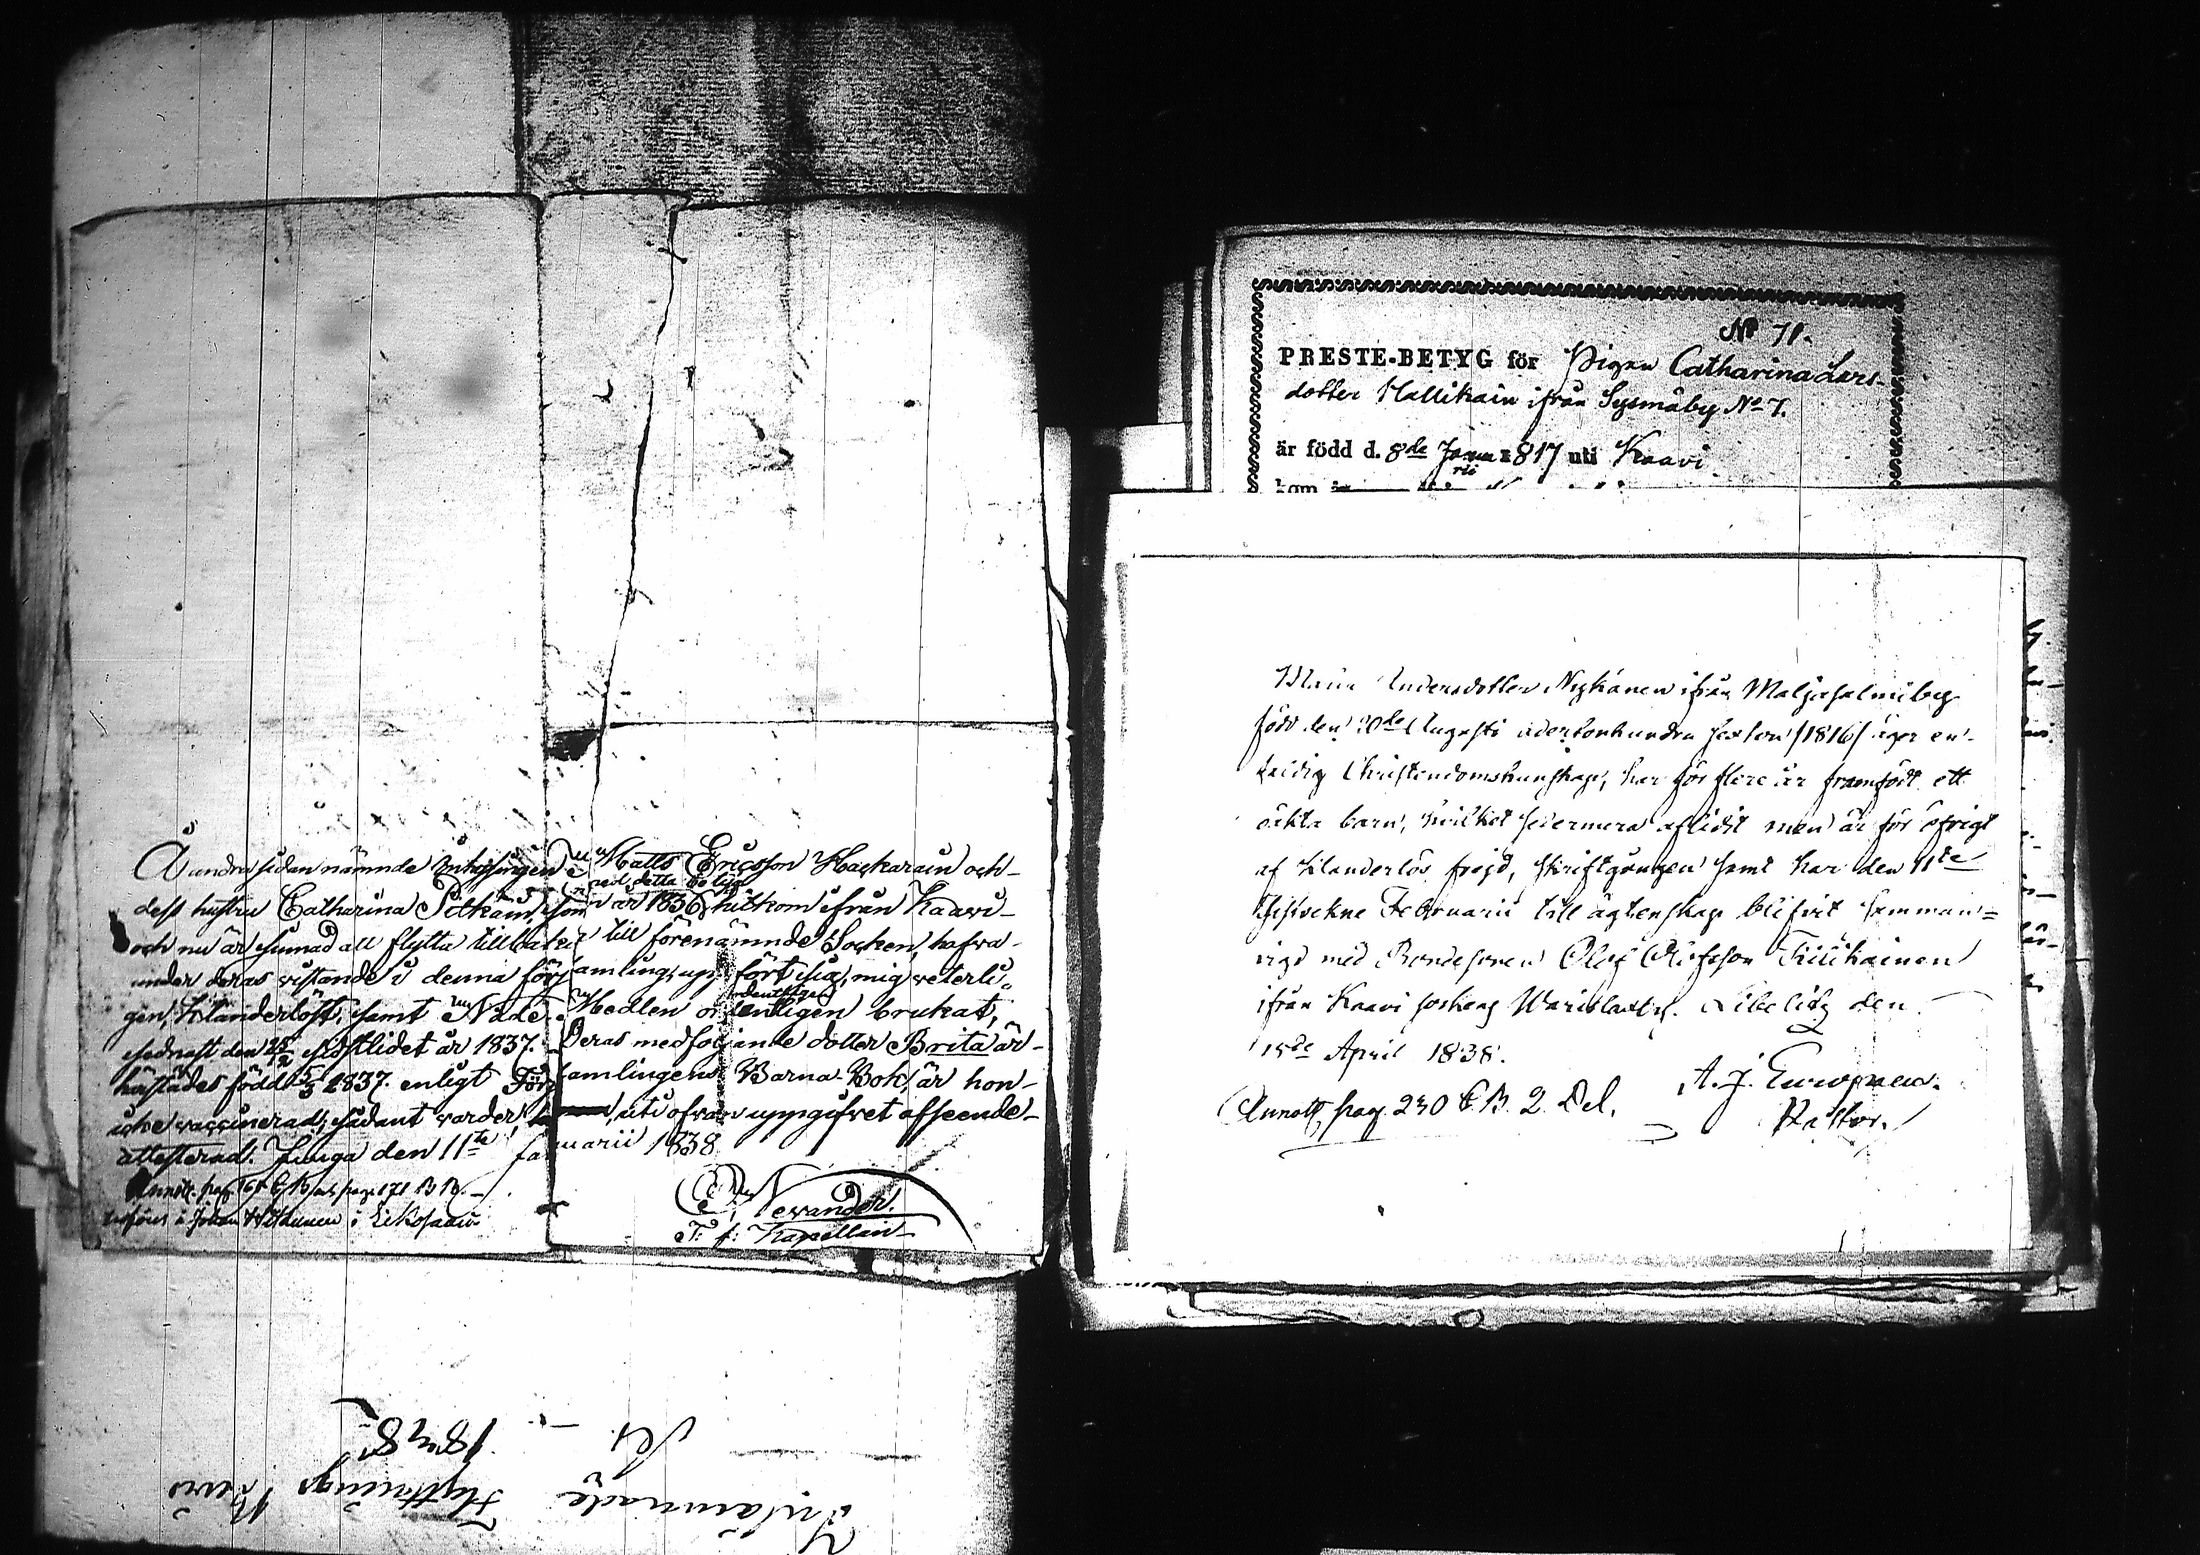 Å andra sidan nämnde Inhysingen Matts Ericsson Hackarain och
med detta betyg
dess hustru Catharina Pitkäin, som år 1836 hitkom ifrån Kaavi
och nu är sinnad att flytta tillbaka till förenämnde Socken, hafva
under deras vistande i denna församling, uppfört sig, mig veterli-
gen, klanderlöst, samt Nåde Medlen ordentligen brukat,
sednast den 25/2 sistlidet år 1837. Deras medföljande dotter Brita är
härstädes född 5/3 1837. enligt Församlingens Barna-Bok, är hon
icke vaccinerad; sådant varder, uti ofvan uppgifvet afseende
attesterad. Juuga den 11te Januarii 1838.
Annott. pag. 171 B B.
Johan i Eikosaari
Nevander.
T. f. Kapellan
Inlämnade Flyttnings Bevis
1838
PRESTE-BETYG för Pigan Catharina Lars-
No 71.
dotter Hallikain ifrån Sysmäby No 7.
är född d. 8de Januarii 1817 uti Kaavi
Maria Andersdotter Nykänen ifrån Maljasalmiby
född den 20de Augusti adertonhundra sexton /1816/ äger en
Christendomskunskap, har för flere år framfödt ett
oäkta barn, hvilket sedermera aflidit men är för öfrigt
af klanderlös frejd, skriftgången samt har den 11te
sistvekne Februarii till ägtenskap blifvit samman=
vigd med Bondesonen Olof Olofsson
ifrån Kaavi sockens Warislaxby. Libelitz den
15de April 1838.
A. J. Europaeus.
Pastor.
Annott. pag. 230 C B. 2 Del.